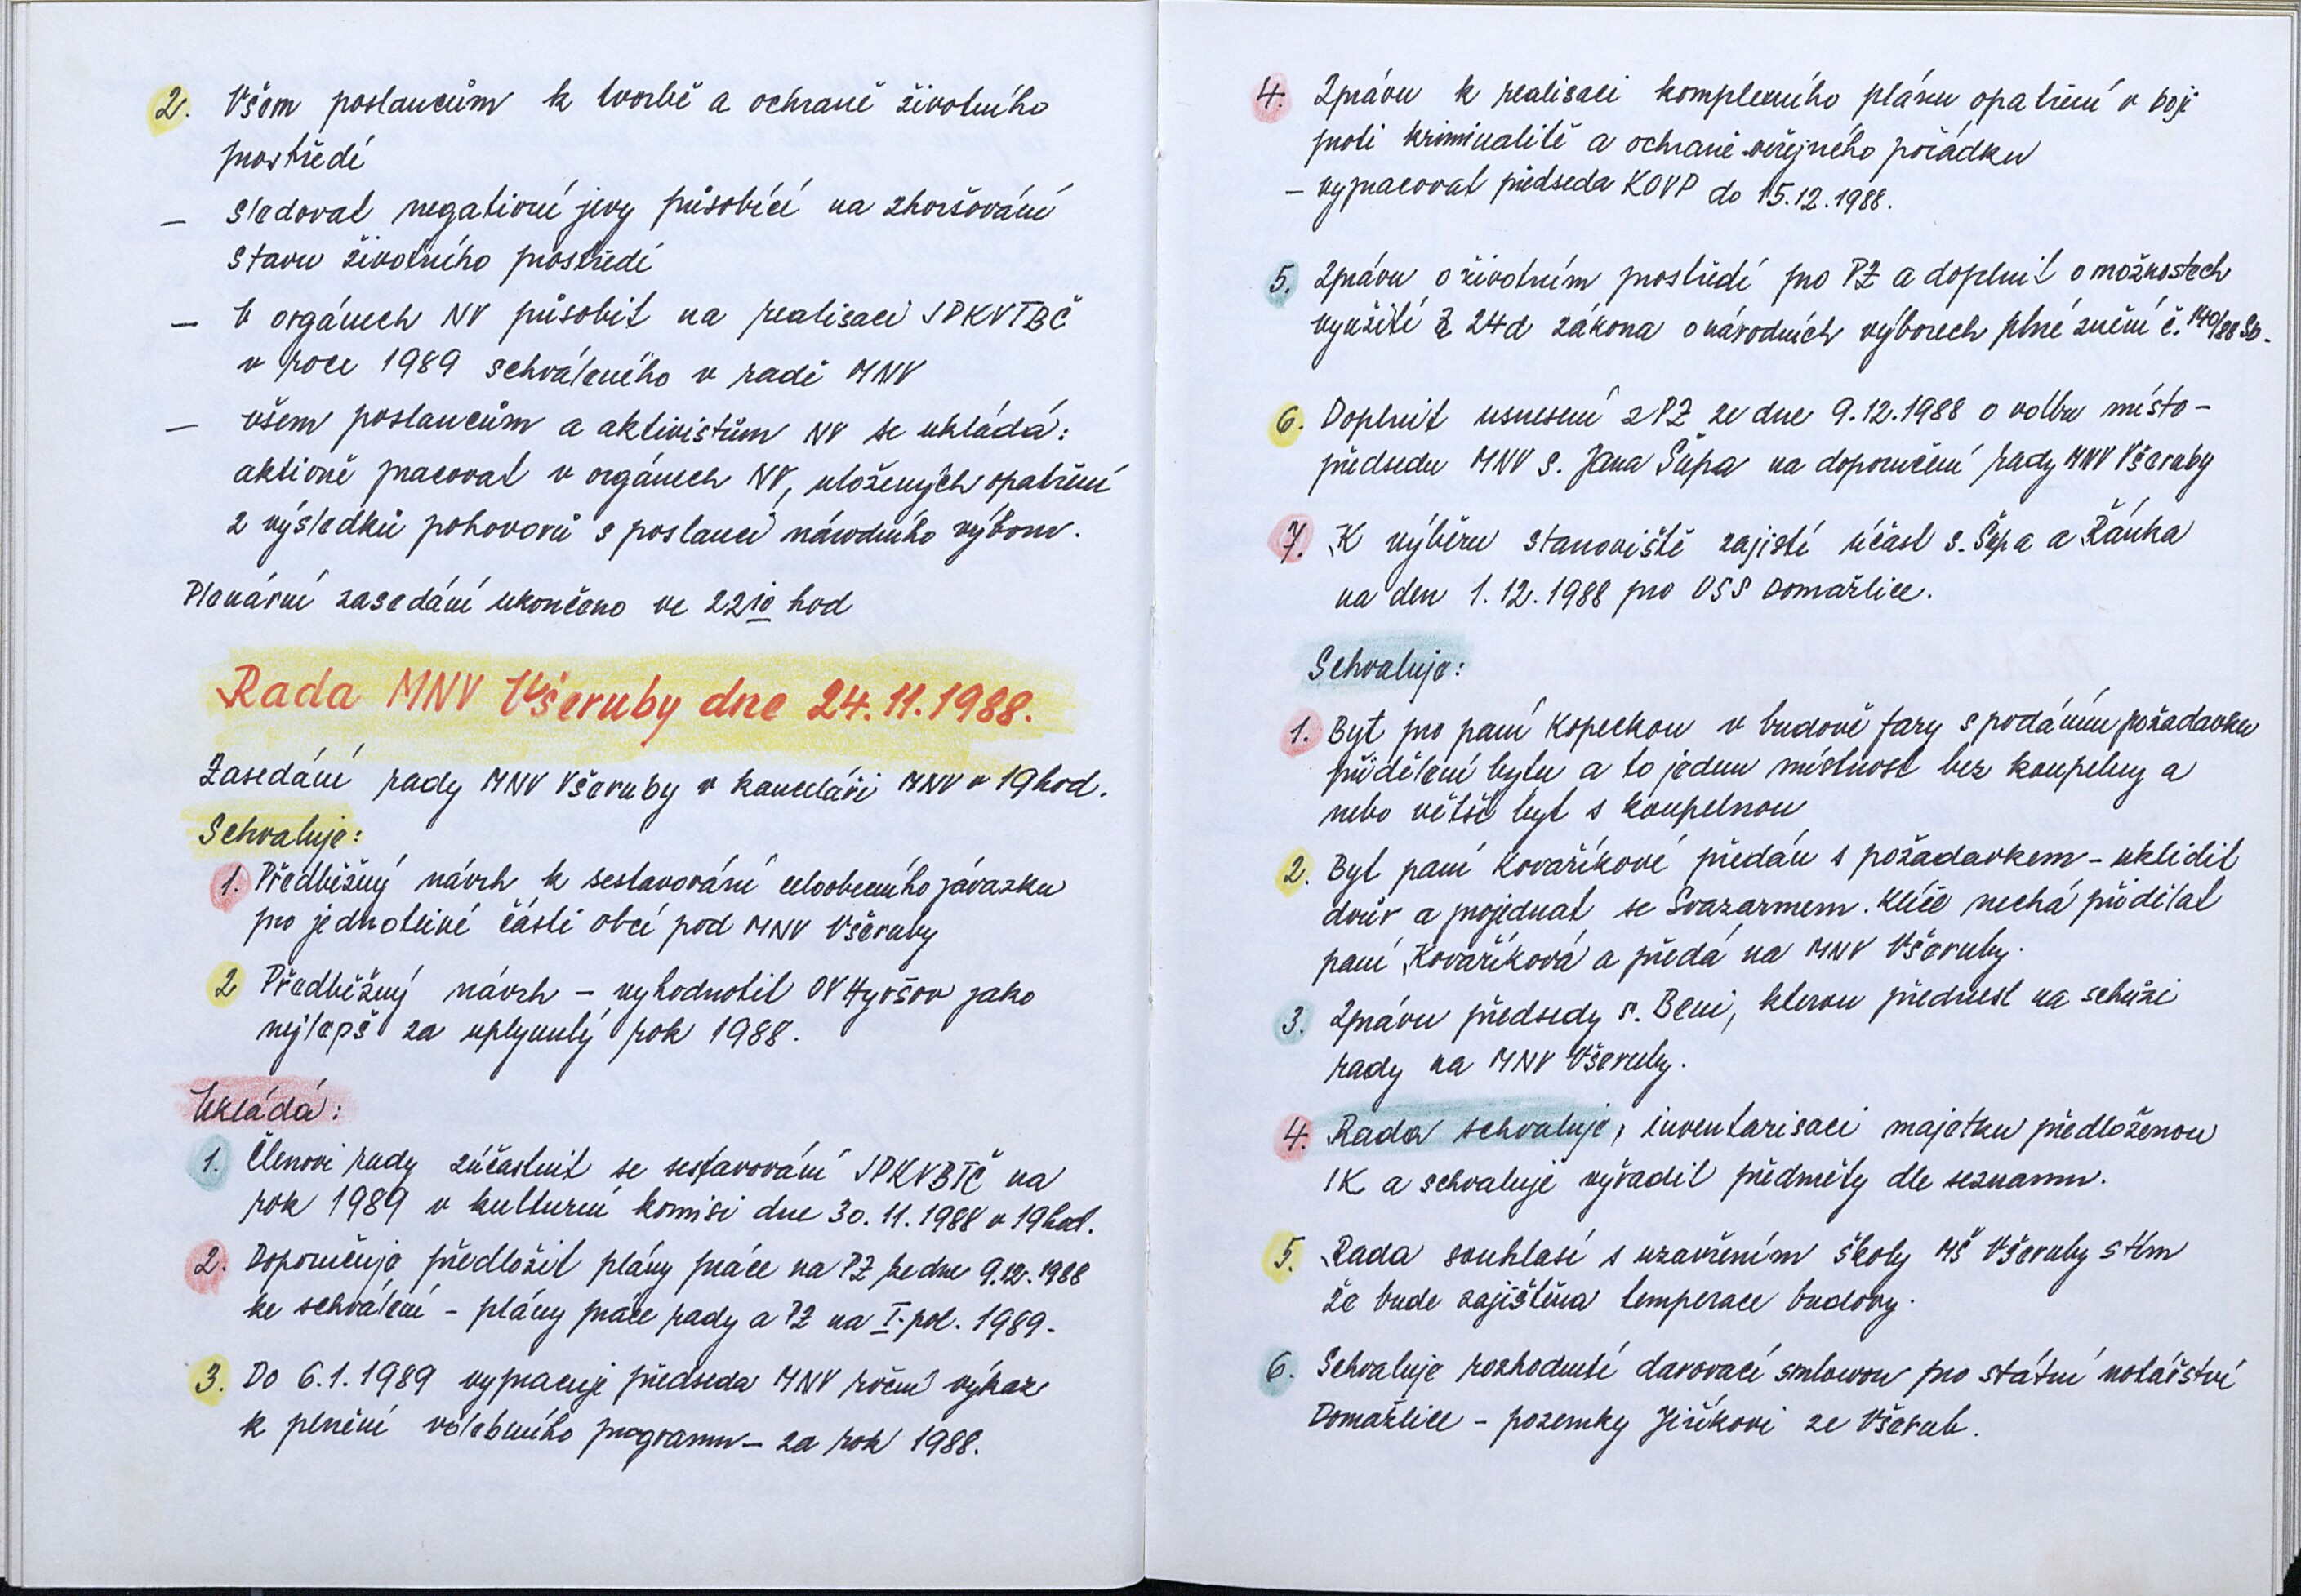 2. Všem poslancům k tvorbě a ochraně životního
prostředí
– sledovat negativní jevy působící na zhoršování
stavu životního prostředí
– V orgánech NV působit na realisaci JPKVTBČ
v roce 1989 schváleného v radě MNV
– všem poslancům a aktivistům NV se ukládá:
aktivně pracovat v orgánech NV, uložených opatření
z výsledků pohovorů s poslanci národního výboru.
Plenární zasedání ukončeno ve 22 10 hod
Rada MNV Všeruby dne 24.11.1988.
Zasedání rady MNV Všeruby v kanceláři MNV v 19 hod.
Schvaluje:
1. Předběžný návrh k sestavování celoobecního závazku
pro jednotlivé části obcí pod MNV Všeruby
2 Předběžný návrh – vyhodnotil OV Hyršov jako
nejlepš za uplynulý rok 1988.
Ukládá:
1. Členovi rady zúčastnit se sestavování JPKVBTČ na
rok 1989 v kulturní komisi dne 30.11.1988 v 19 hod.
2. Doporučuje předložit plány práce na PZ ze dne 9.12.1988
ke schválení – plány práce rady a PZ na I. pol. 1989.
3. Do 6.1.1989 vypracuje předseda MNV roční výkaz
k plnění volebního programu – za rok 1988.
4. Zprávu k realisaci komplexního plánu opatření v boji
proti kriminalitě a ochraně veřejného pořádku
– vypracovat předseda KOVP do 15.12.1988.
5. Zprávu o životním prostředí pro PZ a doplnit o možnostech
využití § 24d zákona o národních výborech plné znění č. 140/88 Sb.
6. Doplnit usnesení z PZ ze dne 9.12.1988 o volbu místo-
předsedu MNV s. Jana Šúpa na doporučení rady MNV Všeruby
7. K výběru stanoviště zajistí účast s. Šúpa a Řánka
na den 1.12.1988 pro OSS Domažlice.
Schvaluje:
1. Byt pro paní Kopeckou v budově fary s podáním požadavku
přidělení bytu a to jednu místnost bez koupelny a
nebo větší byt s koupelnou
2. Byt paní Kovaříkové předán s požadavkem – uklidit
dvůr a projednat se Svazarmem. Klíče nechá přidělat
paní Kovaříková a předá na MNV Všeruby.
3. Zprávu předsedy s. Beni, kterou přednesl na schůzi
rady na MNV Všeruby.
4. Rada schvaluje, inventarisaci majetku předloženou
IK a schvaluje vyřadit předměty dle seznamu.
5. Rada souhlasí s uzavřením školy MŠ Všeruby s tím
že bude zajištěna temperace budovy.
6. Schvaluje rozhodnutí darovací smlouvou pro státní notářství
Domažlice – pozemky Jiříkovi ze Všerub.